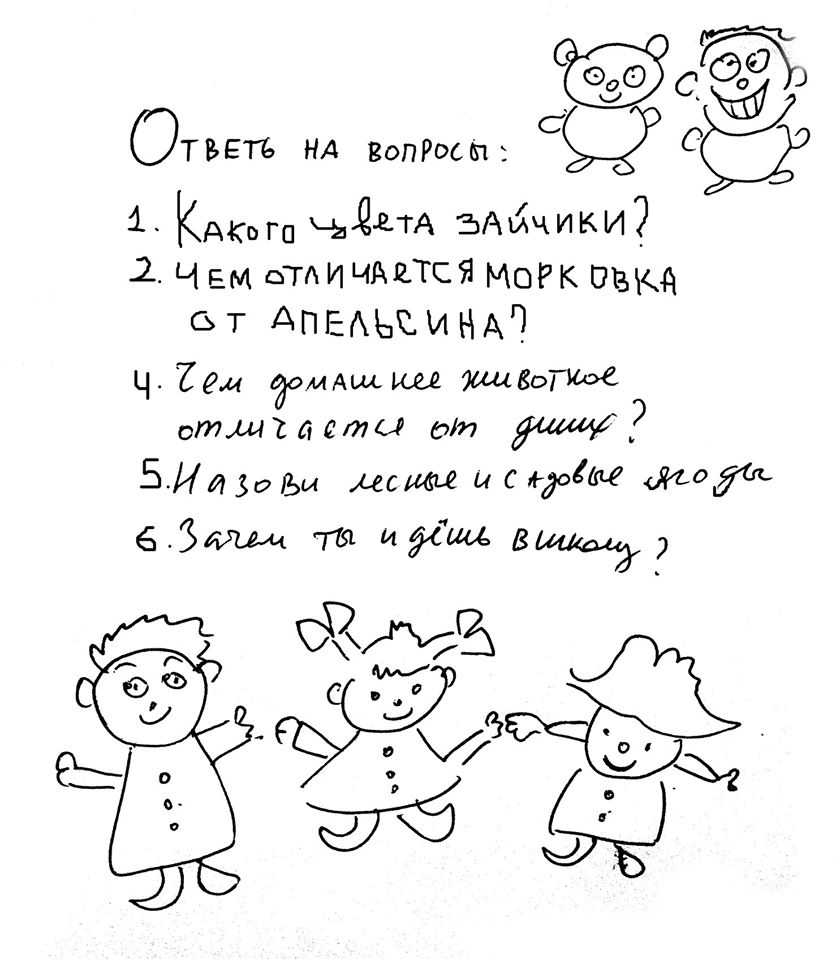 Ответь на вопросы:
1. Какого цвета зайчики?
2. Чем отличается морковка
от апельсина?
4. Чем домашнее животное
отличается от диких?
5. Назови лесные и садовые ягоды
6. Зачем ты идёшь в школу?